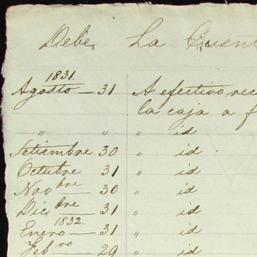 Debe, La Cuen
1831.
Agosto — 31 A efectivo rec
la caja a f
" " " id
Setiembre 30 " id
Octubre 31 " id
Novbre — 30 " id
Dicbre — 31 " id
1832.
Enero — 31 " id
Febro 29 " id